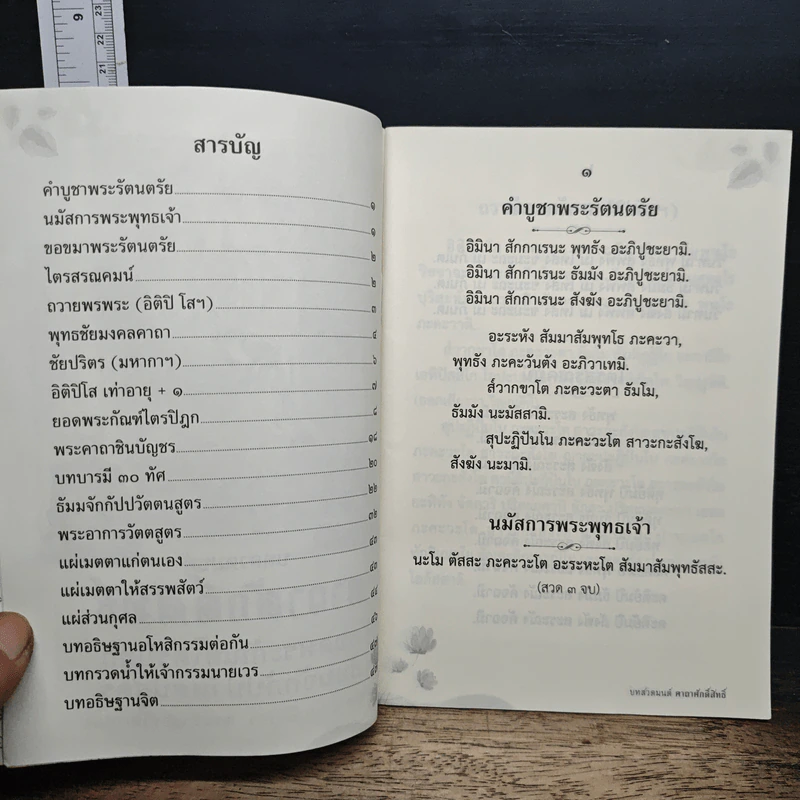 9
23
22
21
สารบัญ
คำบูชาพระรัตนตรัย ๑
นมัสการพระพุทธเจ้า ๑
ขอขมาพระรัตนตรัย ๒
ไตรสรณคมน์ ๒
ถวายพรพระ (อิติปิ โสฯ) ๓
พุทธชัยมงคลคาถา ๔
ชัยปริตร (มหากาฯ) ๖
อิติปิโส เท่าอายุ + ๑ ๗
ยอดพระกัณฑ์ไตรปิฎก ๘
พระคาถาชินบัญชร ๑๘
บทบารมี ๓๐ ทัศ ๒๐
ธัมมจักกัปปวัตตนสูตร ๒๒
พระอาการวัตตสูตร ๓๒
แผ่เมตตาแก่ตนเอง ๔๓
แผ่เมตตาให้สรรพสัตว์ ๔๓
แผ่ส่วนกุศล ๔๔
บทอธิษฐานอโหสิกรรมต่อกัน
บทกรวดน้ำให้เจ้ากรรมนายเวร
บทอธิษฐานจิต
๑
คำบูชาพระรัตนตรัย
อิมินา สักกาเรนะ พุทธัง อะภิปูชะยามิ.
อิมินา สักกาเรนะ ธัมมัง อะภิปูชะยามิ.
อิมินา สักกาเรนะ สังฆัง อะภิปูชะยามิ.
อะระหัง สัมมาสัมพุทโธ ภะคะวา,
พุทธัง ภะคะวันตัง อะภิวาเทมิ.
ส์วากขาโต ภะคะวะตา ธัมโม,
ธัมมัง นะมัสสามิ.
สุปะฏิปันโน ภะคะวะโต สาวะกะสังโฆ,
สังฆัง นะมามิ.
นมัสการพระพุทธเจ้า
นะโม ตัสสะ ภะคะวะโต อะระหะโต สัมมาสัมพุทธัสสะ.
(สวด ๓ จบ)
บทสวดมนต์ คาถาศักดิ์สิทธิ์